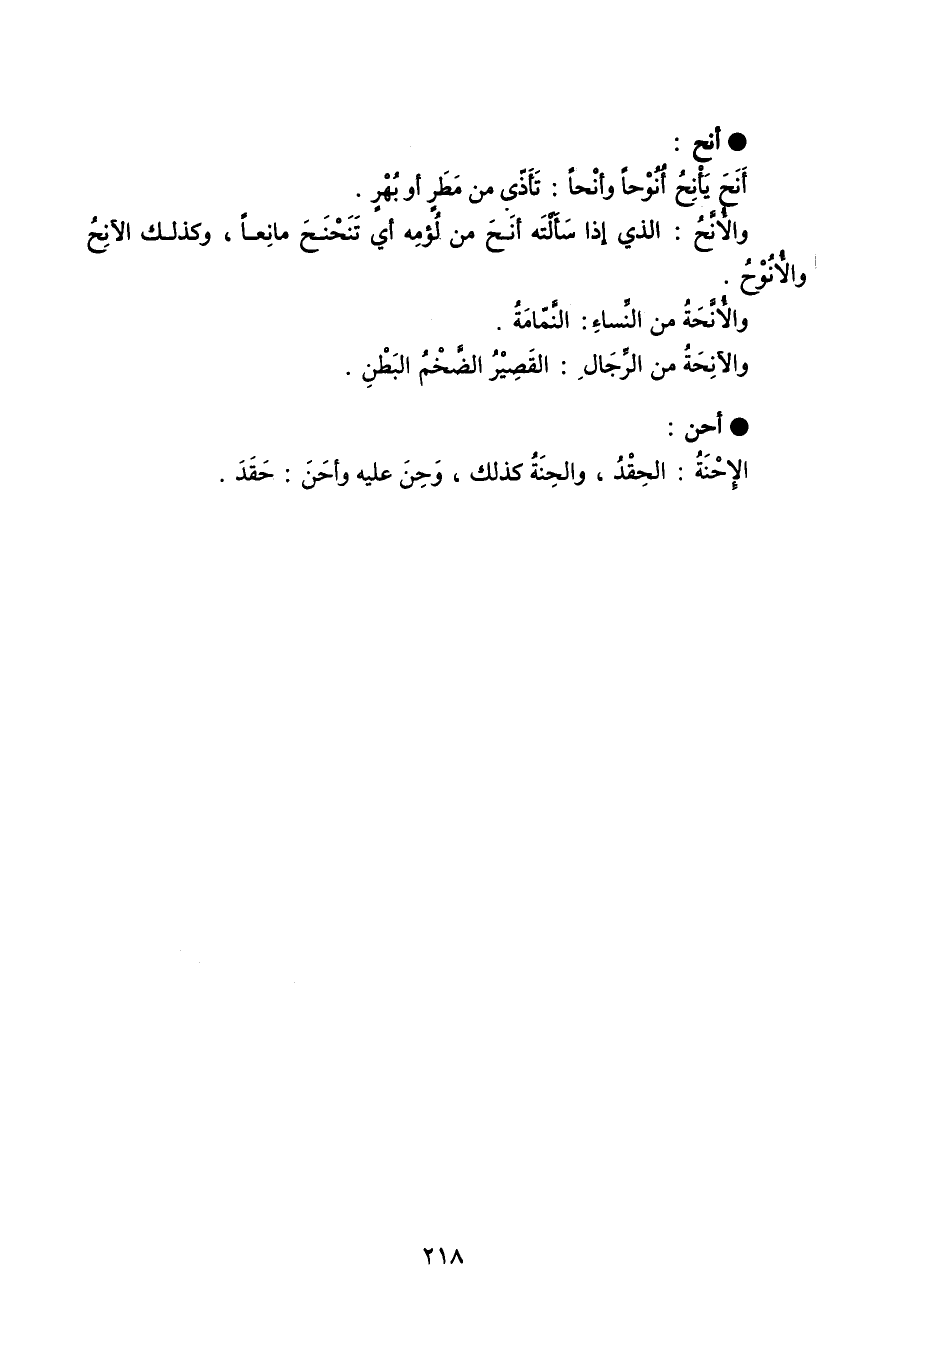 ● أنح :
أَنَحَ يَأْنِحُ أُنُوْحاً وأنْحاً : تَأَذّى من مَطَرٍ أو بُهْرٍ .
والأُنَّحُ : الذي إذا سَأَلْتَه أنَـحَ من لُؤمِه أي تَنَحْنَـحَ مانِعـاً ، وكذلـك الآنِحُ
والأُنُوْحُ .
والأُنَّحَةُ من النِّساءِ : النَّمّامَةُ .
والآنِحَةُ من الرِّجَالِ : القَصِيْرُ الضَّخْمُ البَطْنِ .
● أحن :
الإِحْنَةُ : الحِقْدُ ، والحِنَةُ كذلك ، وَحِنَ عليه وأحَنَ : حَقَدَ .
٢١٨